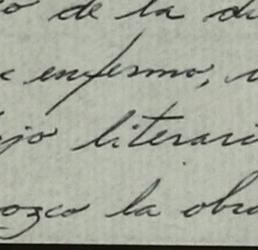 o de la du
enfermo,
ajo literari
ozco la obra